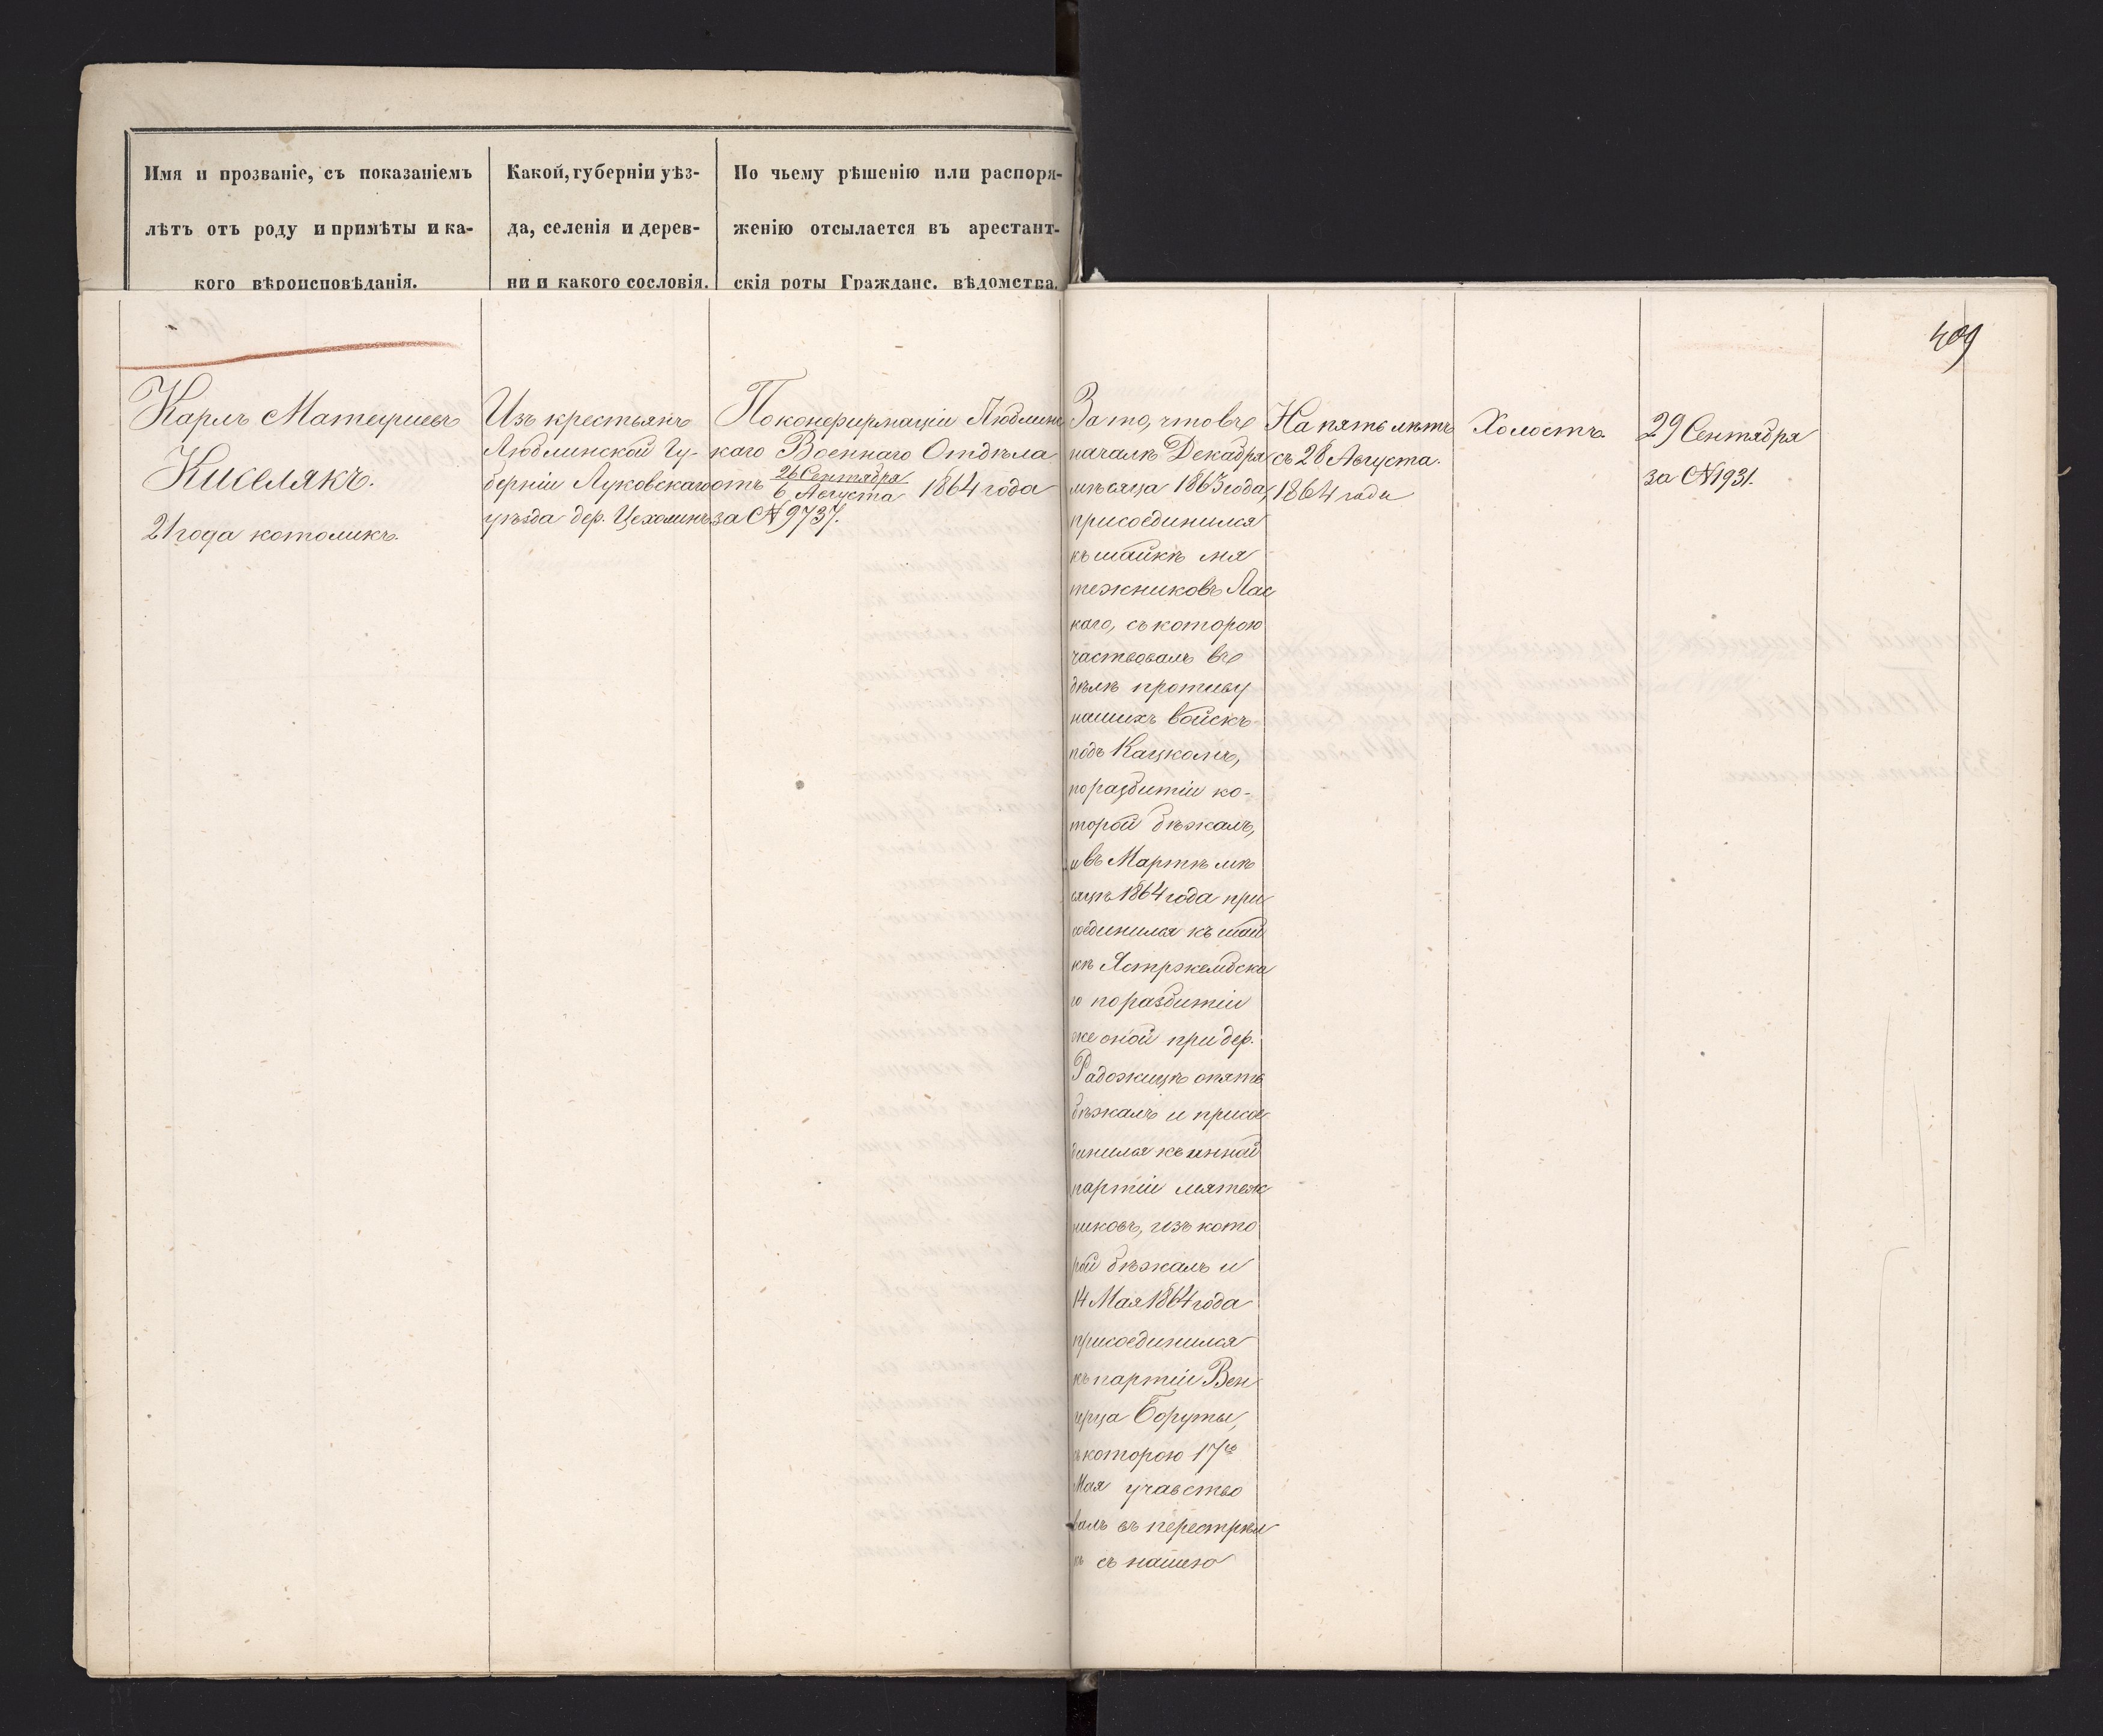 Имя и прозваніе, съ показаніемъ
лѣтъ отъ роду и примѣты и ка-
кого вѣроисповѣданія.
Какой, губерніи уѣз-
да, селенія и дерев-
ни и какого сословія.
По чьему рѣшенію или распоря-
женію отсылается въ арестант-
скія роты Гражданс. вѣдомства.
409
Карлъ Матеушевъ
Киселякъ.
21 года католикъ.
Изъ крестьянъ
Люблинской Гу-
берніи Луковскаго
уѣзда дер. Цехоминъ
По конфирмаціи Люблинс
каго Военнаго Отдѣла
отъ 26 Сентября / 6 Августа 1864 года
за № 9737.
За то, что въ
началѣ Декабря
мѣсяца 1863 года,
присоединился
къ шайкѣ мя
тежниковъ Лас
каго, съ которою
частвовалъ въ
дѣлѣ противу
нашихъ войскъ
подъ Кацкомъ,
по разбитіи ко-
торой бѣжалъ,
и въ Мартѣ мѣ
сяцѣ 1864 года при
соединился къ шай
кѣ Ястржембска
го по разбитіи
же оной при дер.
Радожицѣ опять
бѣжалъ и присое
динился къ инной
партіи мятеж
никовъ, изъ кото
рой бѣжалъ и
14 Мая 1864 года
присоединился
къ партіи Вен
герца Боруты,
съ которою 17го
Мая учавство
валъ въ перестрѣл
кѣ съ нашею
На пять лѣтъ
съ 28 Августа.
1864 года
Холостъ.
29 Сентября
за № 1931.